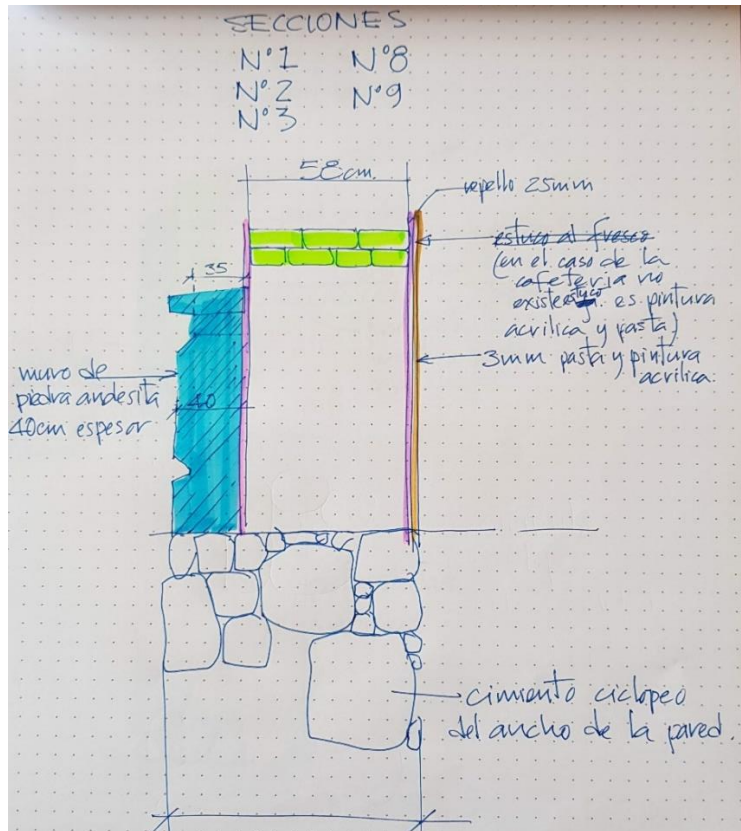 SECCIONES
N°1 N°8
N°2 N°9
N°3
58cm.
repello 25mm
estuco al fresco
(en el caso de la
cafeteria no
existe estuco es pintura
acrilica y pasta)
3mm pasta y pintura
acrilica.
35
muro de
piedra andesita
40cm espesor
40
cimiento ciclopeo
del ancho de la pared.